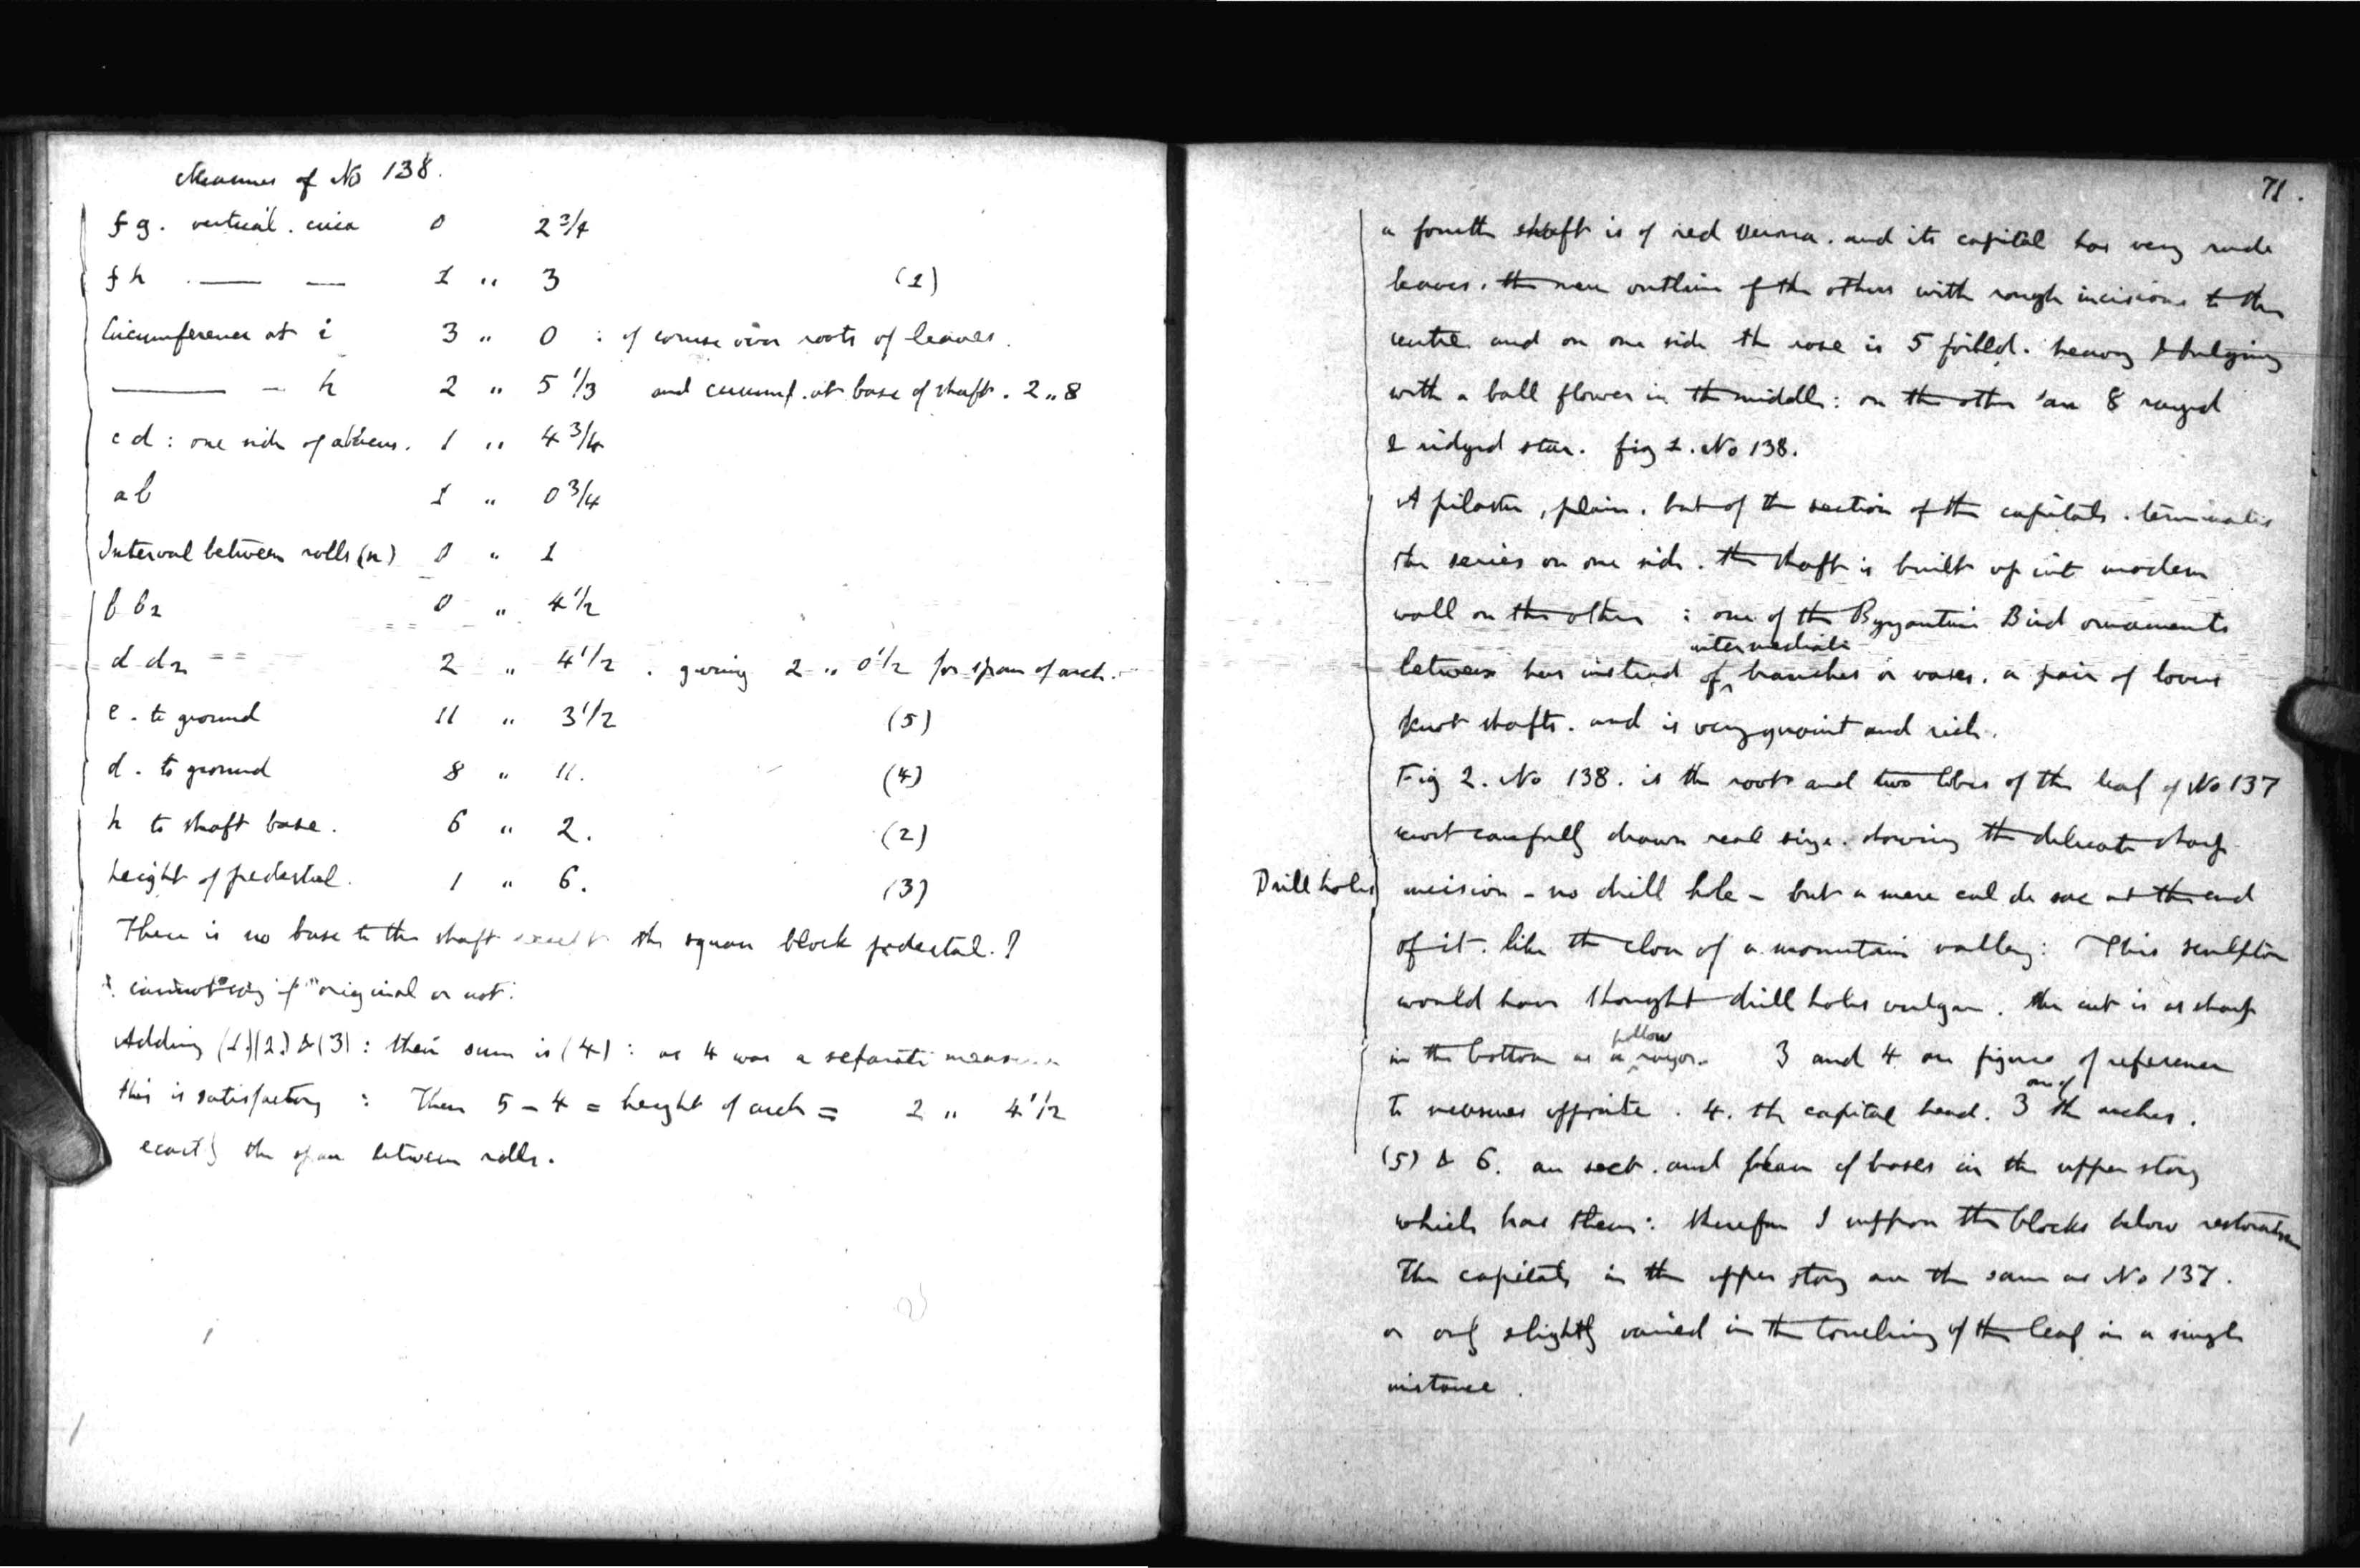 Measures of No 138.
f g. vertical. circa 0 2 3/4
f h . — — 1 " 3 (1)
Circumference at i 3 " 0 : of course over roots of leaves.
——— — h 2 " 5 1/3 and circumf. at base of shaft. 2 " 8
c d : one side of abacus. 1 " 4 3/4
a b 1 " 0 3/4
Interval between rolls (n) 0 " 1
b b2 0 " 4 1/2
d d2 2 " 4 1/2 . giving 2 " 0 1/2 for span of arch.
e. to ground 11 " 3 1/2 (5)
d. to ground 8 " 11. (4)
h to shaft base. 6 " 2. (2)
height of pedestal. 1 " 6. (3)
There is no base to the shaft except the square block pedestal. I
cannot say if original or not.
Adding (1)(2) & (3) : their sum is (4) : as 4 was a separate measure
this is satisfactory : Then 5 - 4 = height of arch = 2 " 4 1/2
exactly the span between rolls.
71.
a fourth shaft is of red Verona. and its capital has very rude
leaves. the mere outline of the others with rough incisions to the
centre and on one side the rose is 5 foiled. heavy & bulging
with a ball flower in the middle : on the other an 8 rayed
& ridged star. fig 1. No 138.
A pilaster, plain. but of the section of the capitals. terminates
the series on one side. the shaft is built up into modern
wall on the other : one of the Byzantine Bird ornaments
between has instead of intermediate branches or vases. a pair of lovers
knot shafts. and is very quaint and rich.
Fig 2. No 138. is the root and two lobes of the leaf of No 137
most carefully drawn real size. showing the delicate sharp
Drill holes
incision - no drill hole - but a mere cul de sac at the end
of it. like the close of a mountain valley : This sculptor
would have thought drill holes vulgar. the cut is as sharp
in the bottom as a hollow razor. 3 and 4 are figures of reference
to measures opposite. 4. the capital head. 3 one of the arches.
(5) & 6. are sect. and plan of bases in the upper story
which has them : therefore I suppose the blocks below restoration
The capitals in the upper story are the same as No 137.
or only slightly varied in the touching of the leaf in a single
instance.